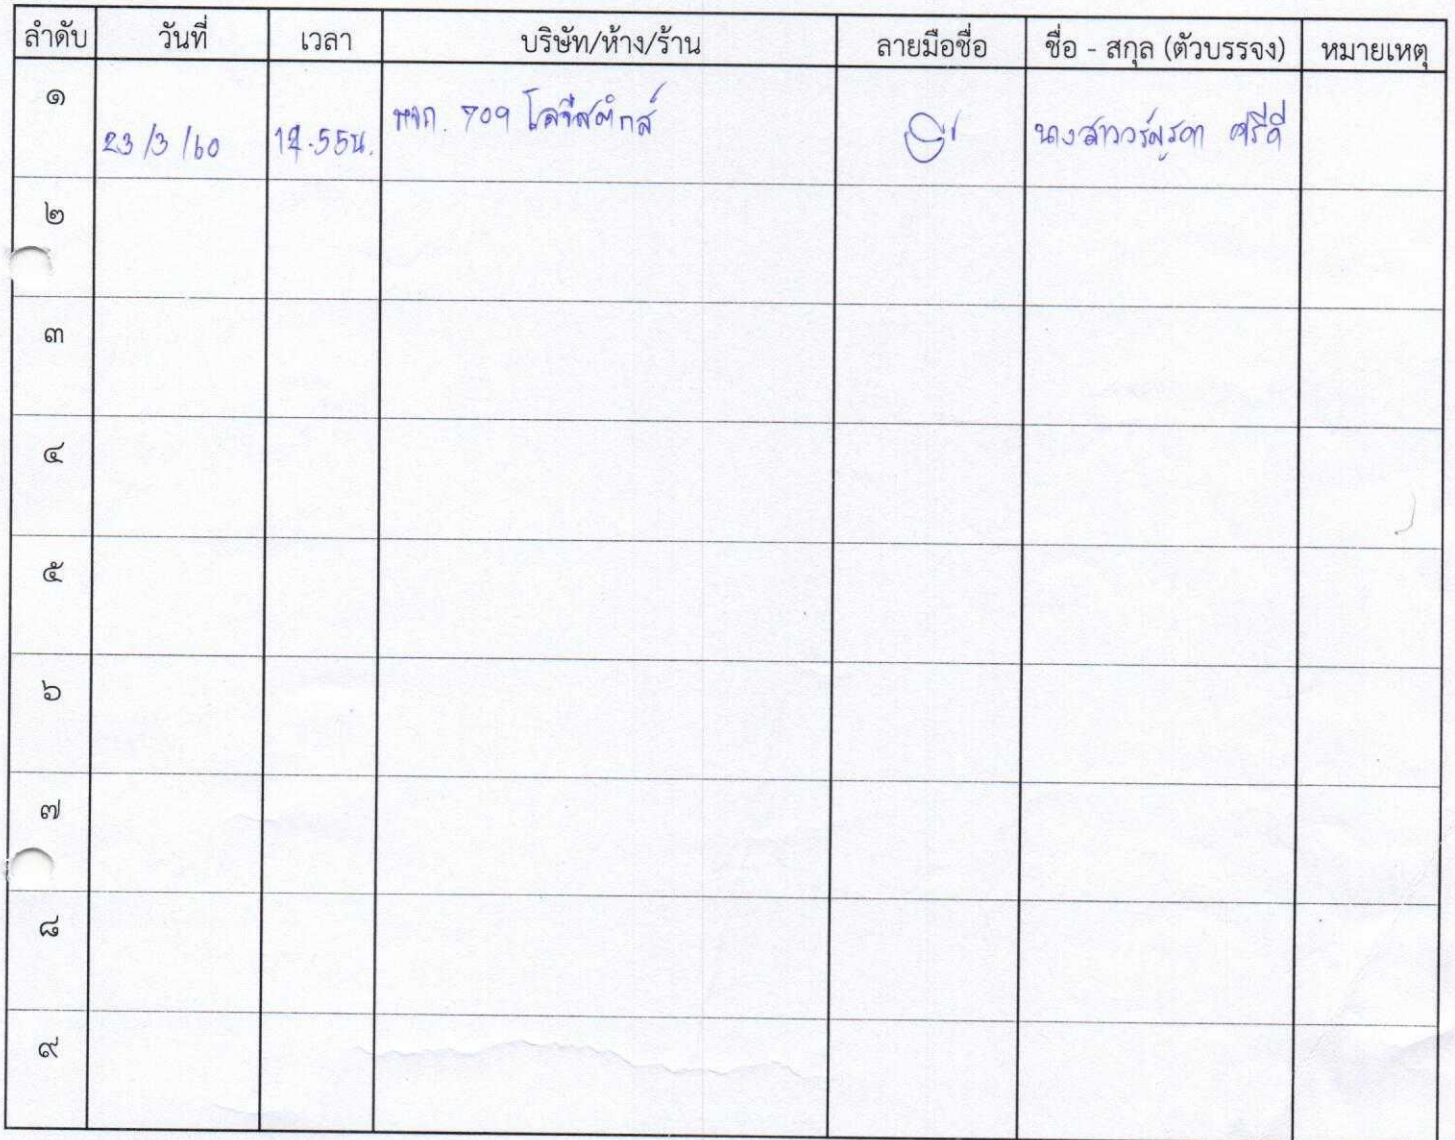 ลำดับ วันที่ เวลา บริษัท/ห้าง/ร้าน ลายมือชื่อ ชื่อ - สกุล (ตัวบรรจง) หมายเหตุ
๑ 23/3/60 หจก. 709 โลจีสติกส์ นางสาว ศรีดี
๒
๓
๔
๕
๖
๗
๘
๙